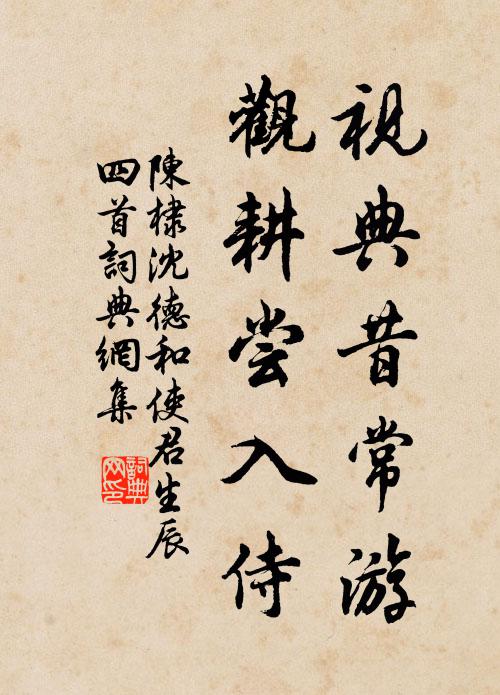 視典昔常游
觀耕嘗入侍
陳棣沈德和使君生辰
四首詞典網集
詞典網印